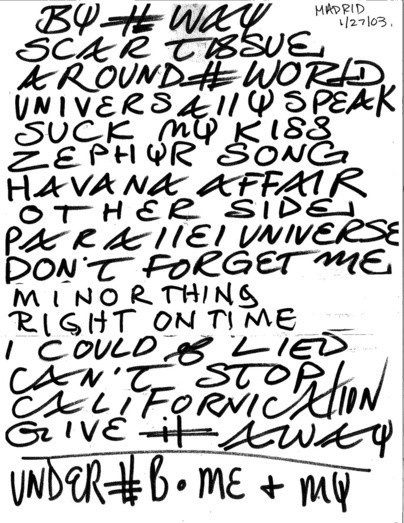 MADRID
1/27/03.
BY # WAY
SCAR TISSUE
AROUND # WORLD
UNIVERSAllY SPEAK
SUCK MY KISS
ZEPHYR SONG
HAVANA AFFAIR
OTHER SIDE
PARAllEl UNIVERSE
DON'T FORGET ME
MINOR THING
RIGHT ON TIME
I COULD LIED
CAN'T STOP
CALIFORNICATION
GIVE it AWAY
UNDER # B. ME + MY